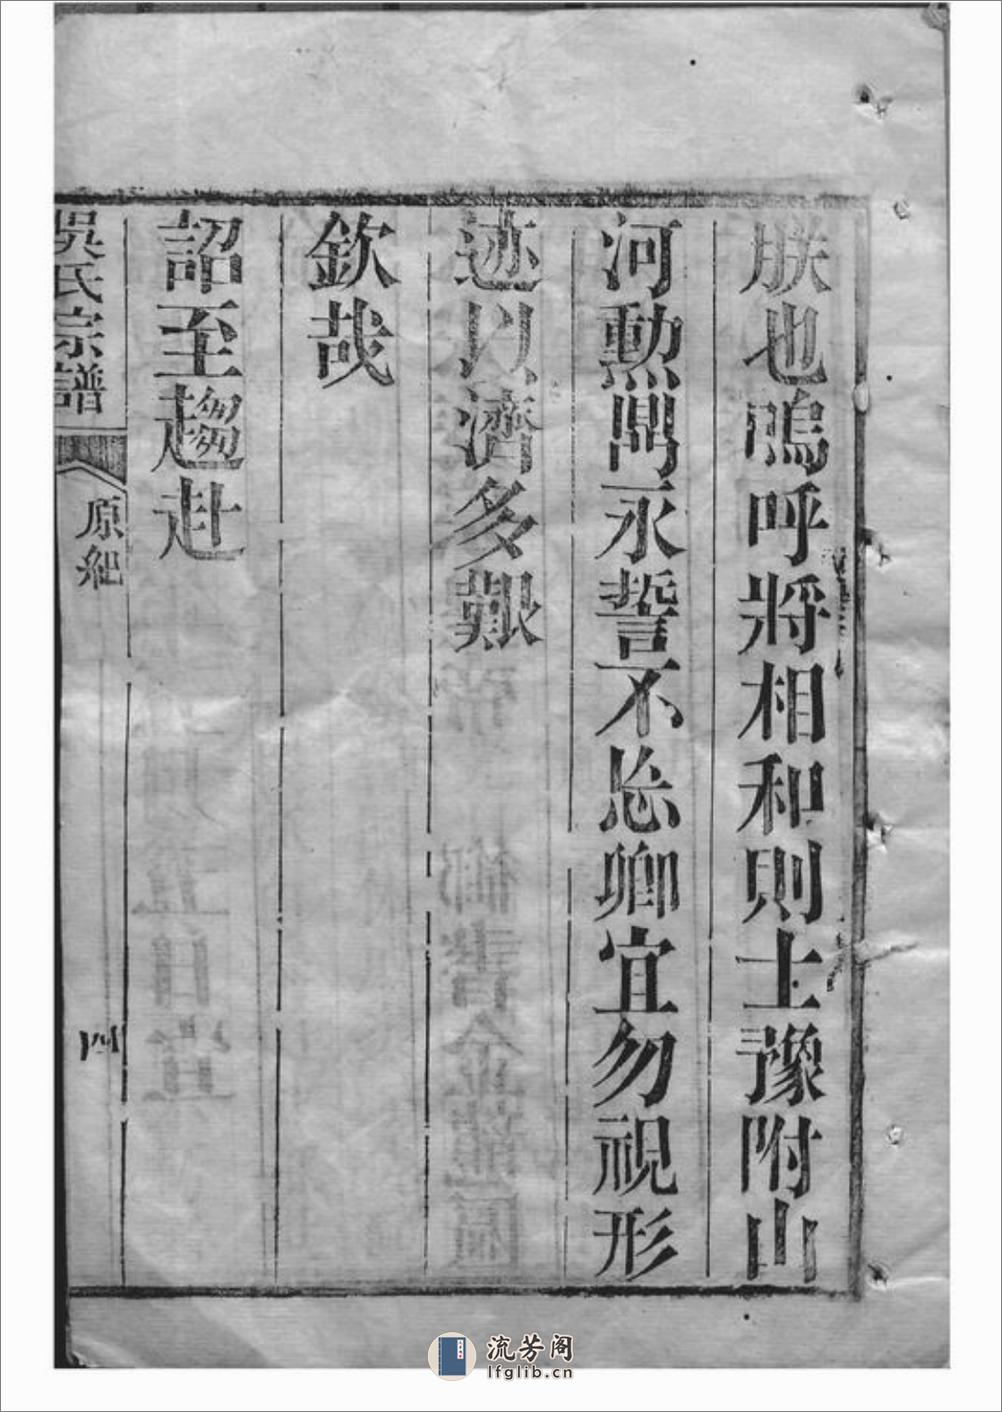 朕也嗚呼將相和則士豫附山
河勲鼎永誓不忘卿宜勿視形
迹以濟多艱
欽哉
詔至趨赴
吳氏宗譜
原紀
四
流芳阁
lfglib.cn